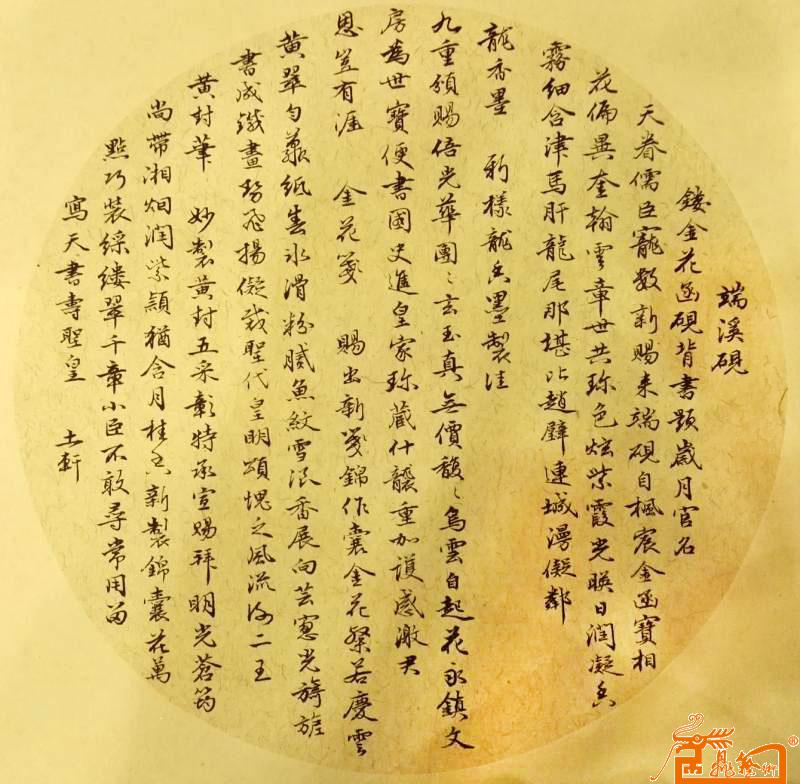 端溪硯
鏤金花函硯背書題歲月官名
天眷儒臣寵數新賜来端硯自楓宸金函寶相
花偏異奎翰雲章世共珎色炫紫霞光暎日潤凝玄
霧細含津馬肝龍尾那堪比趙璧連城漫儗鄰
龍香墨 新樣龍香墨製佳
九重頒賜倍光華團〻玄玉真無價馥〻烏雲自起花永鎮文
房為世寶便書國史進皇家珎藏什襲重加護感激君
恩豈有涯 金花箋 賜出新箋錦作囊金花燦若慶雲
黄翠匀蘂紙春冰滑粉膩魚紋雪浪香展向芸窓光旖旎
書成鐵畫勢飛揚儗裁聖代皇明頌愧乏風流海二王
黄封筆 妙製黄封五采彰特承宣賜拜明光蒼筠
尚帶湘烟潤紫穎猶含月桂香新製錦囊花萬
點巧裝綵縷翠千章小臣不敢尋常用留
寫天書壽聖皇 土軒